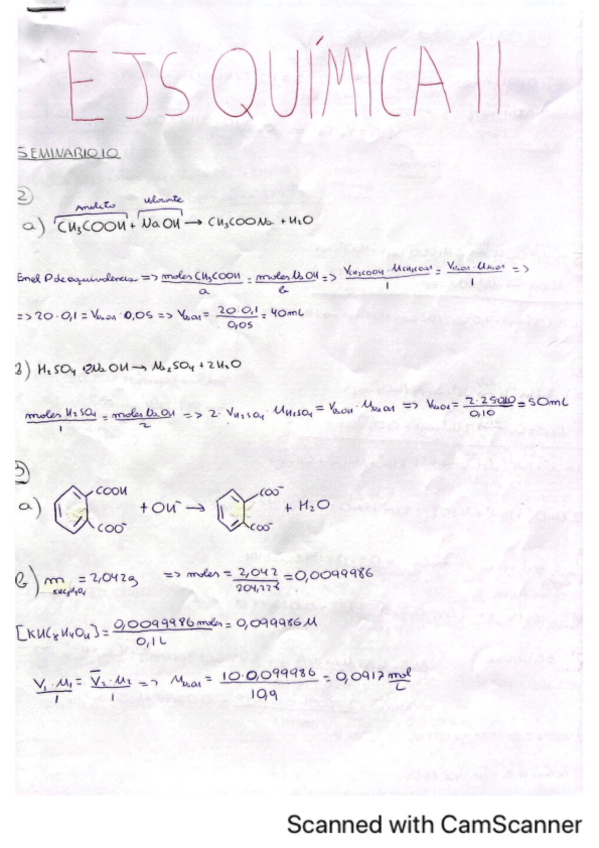 EJS QUÍMICA II
SEMINARIO 10
2
analito valorante
a) CH3COOH + NaOH → CH3COONa + H2O
En el P de equivalencia => moles CH3COOH/a = moles NaOH/b => VCH3COOH · MCH3COOH/1 = VNaOH · MNaOH/1 =>
=> 20 · 0,1 = VNaOH · 0,05 => VNaOH = 20 · 0,1/0,05 = 40 mL
B) H2SO4 + 2NaOH → Na2SO4 + 2H2O
moles H2SO4/1 = moles NaOH/2 => 2 · VH2SO4 · MH2SO4 = VNaOH · MNaOH => VNaOH = /0,10 = 50 mL
a) COOH COO⁻ + OH⁻ → COO⁻ COO⁻ + H2O
b) m KHC8H4O4 = 2,042 g => moles = 2,042/ = 0,0099986
[KHC8H4O4] = 0,0099986 moles/0,1 L = 0,099986 M
V1 · M1/1 = V2 · M2/1 => MNaOH = 10 · 0,099986/10,9 = 0,0917 mol/L
Scanned with CamScanner